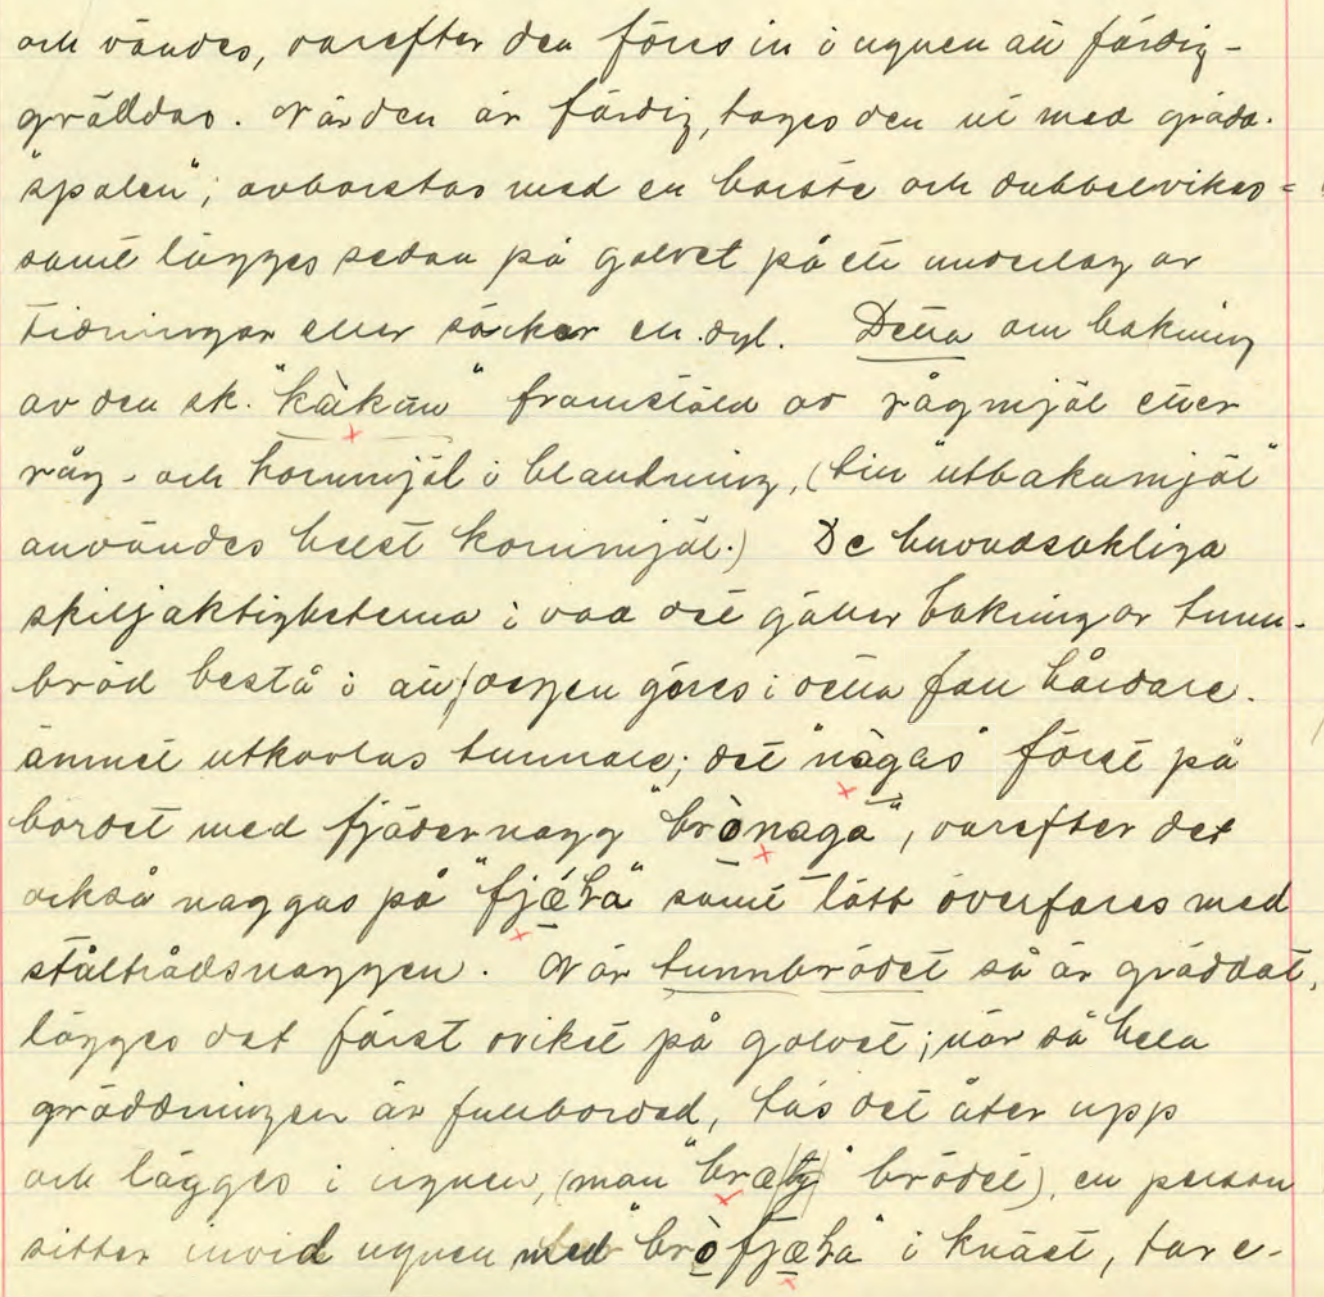 och vändes, varefter den föres in i ugnen att färdig-
gräddas. När den är färdig, tages den ut med grädd-
"spalen", avborstas med en borste och dubbelvikes -
samt lägges sedan på golvet på ett underlag av
tidningar eller säckar el. dyl. Detta om bakning
av den sk. "kàkūn" framställd av rågmjöl eller
råg- och kornmjöl i blandning, (till "utbakamjöl"
användes helst kornmjöl.) De huvudsakliga
skiljaktigheterna i vad det gäller bakning av tunn-
bröd bestå i att degen göres i detta fall hårdare.
ämnet utkavlas tunnare; det "nàgas" först på
bordet med fjädernagg "brònaga", varefter det
också naggas på "fjæ̀ɽa" samt lätt överfares med
ståltrådsnaggen. När tunnbrödet så är gräddat,
lägges det först oviket på golvet; när så hela
gräddningen är fullbordad, tas det åter upp
och lägges i ugnen, (man "bræ brödet), en person
sitter invid ugnen med "bròfjæɽa" i knäet, tar e-